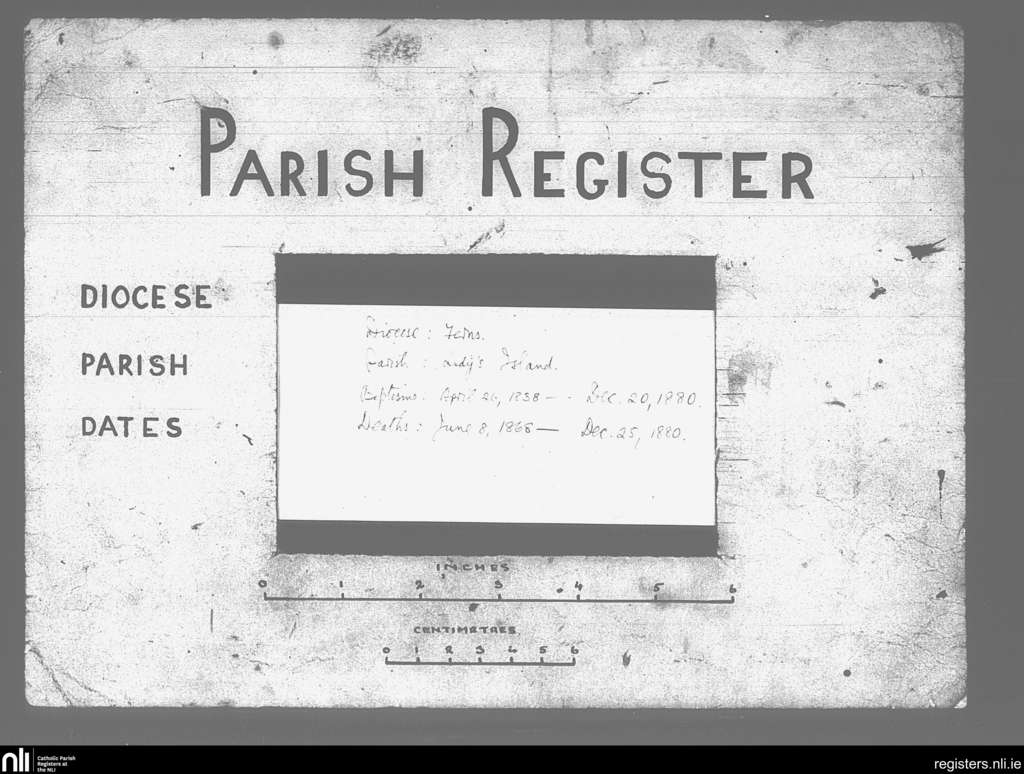 PARISH REGISTER
DIOCESE
PARISH
DATES
Diocese : Ferns.
Parish : Lady's Island.
Baptisms : April 26, 1838 — Dec. 20, 1880.
Deaths : June 8, 1868 — Dec. 25, 1880.
INCHES
0 1 2 3 4 5 6
CENTIMETRES
0 1 2 3 4 5 6
nli Catholic Parish
Registers at
the NLI
registers.nli.ie